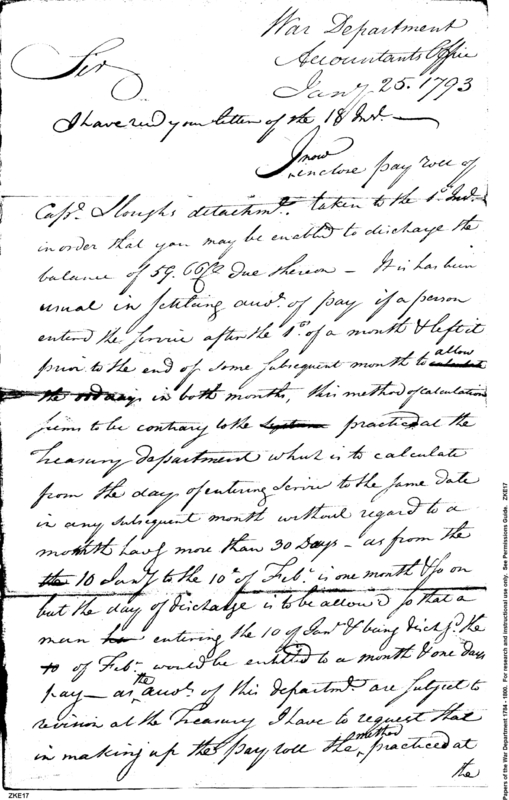 War Department
Accountants Office
Jany 25. 1793
Sir
I have recd your letter of the 18 Inst.
I now enclose pay roll of
Capt. Sloughs detachmt. taken to the 1t. Inst.
in order that you may be enabled to discharge the
balance of 59.66 due thereon - It is has been
usual in settling accots. of pay if a person
entered the service after the 1st. of a month & left it
prior to the end of some subsequent month to allow
the odd days in both months, this method of calculation
seems to be contrary to the practiced at the
Treasury department which is to calculate
from the day of entering Service to the same date
in any subsequent month without regard to a
month havg more than 30 Days - as from the
10 Jany to the 10t of Feby. is one month & so on
but the day of discharge is to be allow'd so that a
man entering the 10 of Jany & being dischgd. the
10 of Feby. would be entitled to a month & one days
pay - as the accots. of this departmt are subject to
revision at the Treasury I have to request that
in making up the pay roll the method practiced at
the
ZKE17
Papers of the War Department 1784 - 1800. For research and instructional use only. See Permissions Guide. ZKE17